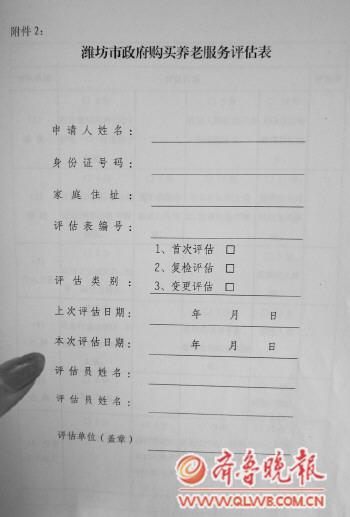 附件2：
潍坊市政府购买养老服务评估表
申请人姓名：
身份证号码：
家庭住址：
评估表编号：
1、首次评估 □
2、复检评估 □
评估类别：
3、变更评估 □
上次评估日期： 年 月 日
本次评估日期： 年 月 日
评估员姓名：
评估员姓名：
评估单位（盖章）
齐鲁晚报
WWW.QLWB.COM.CN